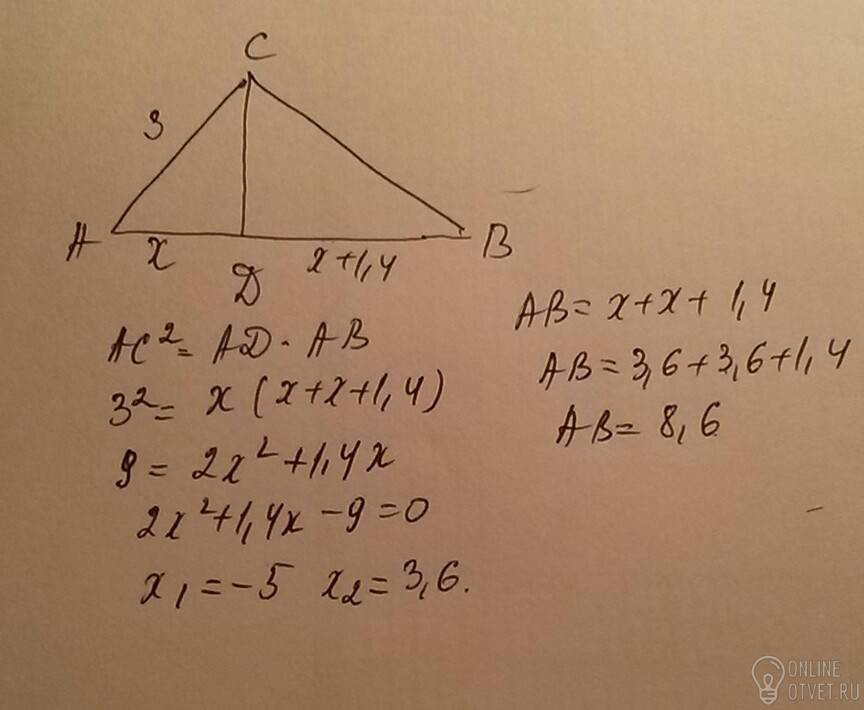 C
3
A
x
D
x+1,4
B
AC²= AD · AB
3²= x (x+x+1,4)
9 = 2x²+1,4x
2x²+1,4x -9=0
x₁ = -5 x₂ = 3,6.
AB= x+x+ 1,4
AB = 3,6+3,6+1,4
AB= 8,6
ONLINE
OTVET.RU